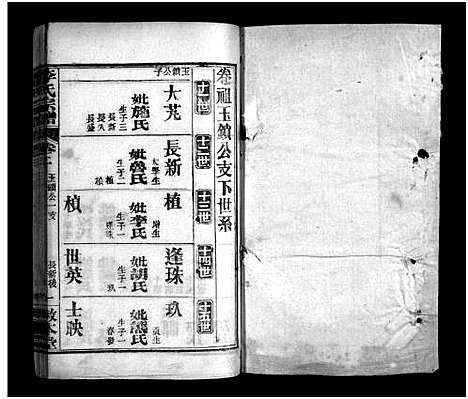 卷祖玉鎮公支下世系
十一世
十二世
十三世
十四世
十五世
玉鎮公子
大芃
妣施氏
生子三
長新
長久
長盛
長新
太學生
妣魯氏
生子二
植
楨
植
庠生
妣李氏
生子一
逢珠
逢珠
妣胡氏
生子一
玖
玖
貢生
妣熊氏
生子一
楨
世英
士映
李氏宗譜
卷二
玉鎮公一支
長新後
敦本堂